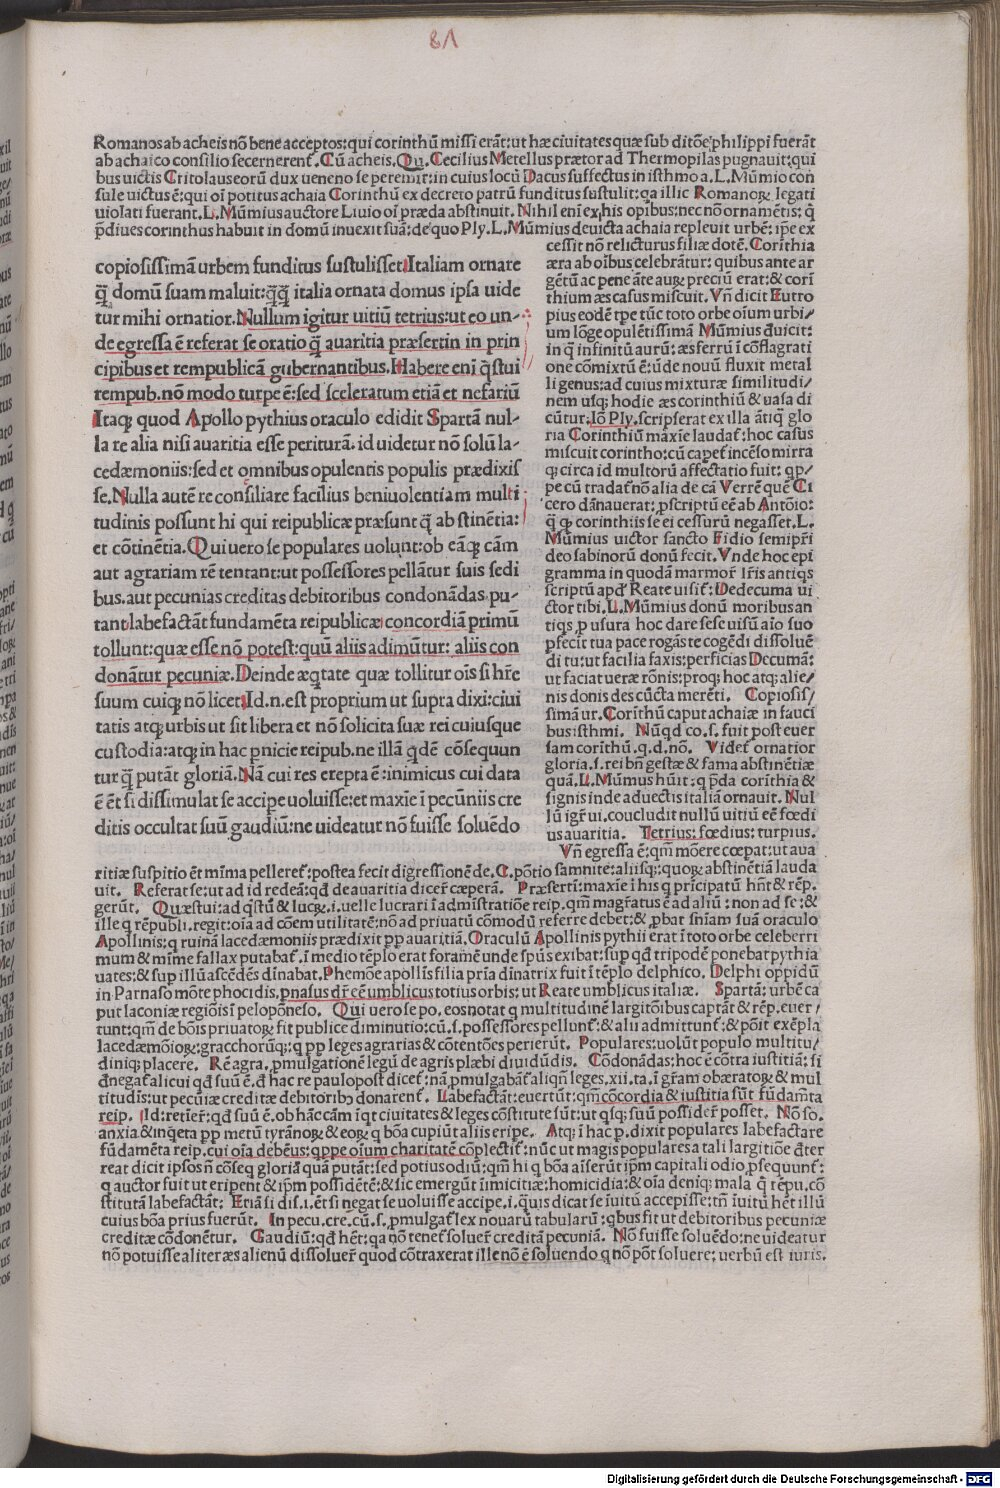 81
Romanos ab acheis nō bene acceptos: qui corinthū missi erāt: ut hæ ciuitates quæ sub ditōe philippi fuerāt
ab achaico consilio secernerent̄. Cū acheis. Qu. Cecilius Metellus prætor ad Thermopilas pugnauit: qui
bus uictis Critolaus eorū dux ueneno se peremit: in cuius locū Dacus suffectus in isthmo a. L. Mūmio con
sule uictus ē: qui oī potitus achaia Corinthū ex decreto patrū funditus sustulit: qa illic Romanoꝝ legati
uiolati fuerant. L. Mūmius auctore Liuio oī præda abstinuit. Nihil enī ex his opibus: nec nō ornamētis: q̄
p̄diues corinthus habuit in domū inuexit suā: de quo Ply. L. Mūmius deuicta achaia repleuit urbē: ip̄e ex
copiosissimā urbem funditus sustulisset. Italiam ornare
q̄ domū suam maluit: q̄q̄ italia ornata domus ipsa uide
tur mihi ornatior. Nullum igitur uitiū tetrius: ut eo un-
de egressa ē referat se oratio q̄ auaritia præsertin in prin
cipibus et rempublicā gubernantibus. Habere enī q̄stui
rempub. nō modo turpe ē: sed sceleratum etiā et nefariū
Itaqꝫ quod Apollo pythius oraculo edidit Spartā nul-
la re alia nisi auaritia esse perituram. id uidetur nō solū la-
cedæmoniis: sed et omnibus opulentis populis prædixis
se. Nulla autē re consiliare facilius beniuolentiam multi
tudinis possunt hi qui reipublicæ præsunt q̄ abstinētia:
et cōtinētia. Qui uero se populares uolunt: ob eāqꝫ cām
aut agrariam rē tentant: ut possessores pellātur suis sedi
bus. aut pecunias creditas debitoribus condonādas pu-
tant labefactāt fundamēta reipublicæ concordiā primū
tollunt: quæ esse nō potest: quū aliis adimūtur: aliis con
donātur pecuniæ. Deinde æqtate quæ tollitur ois si hr̄e
suum cuiqꝫ nō licet. Id. n. est proprium ut supra dixi: ciui
tatis atqꝫ urbis ut sit libera et nō solicita suæ rei cuiusque
custodia: atqꝫ in hac p̱nicie reipub. ne illā q̄dē cōsequun
tur q̄ putāt gloriā. Nā cui res erepta ē: inimicus cui data
ē ēt si dissimulat se accipe uoluisse: et maxīe ī pecūniis cre
ditis occultat suū gaudiū: ne uideatur nō fuisse soluēdo
cessit nō relicturus filiæ dotē. Corīthia
æra ab oībus celebrātur: quibus ante ar
gētū ac pene āte auꝝ preciū erat: & corī
thium æs casus miscuit. Vn̄ dicit Eutro
pius eodē tpe tūc toto orbe oīum urbi/
um lōge opulētissimā Mūmius d̄uicit:
in q̄ infinitū aurū: æs ferrū ī cōflagrati
one cōmixtū ē: ūde nouū fluxit metal
li genus: ad cuius mixturæ similitudi/
nem usqꝫ hodie æs corinthiū & uasa di
cūtur. Iō Ply. scripserat ex illa ātiq̄ glo
ria Corinthiū maxīe laudat̄: hoc casus
miscuit corintho: cū capet̄ incēso mirra
qꝫ circa id multorū affectatio fuit: qp̱/
pe cū tradat̄ nō alia de cā Verrē quē Ci
cero dānauerat: p̱scriptū eē ab Antōio:
q̄ qꝫ corinthiis se ei cessurū negasset. L.
Mūmius uictor sancto Fidio semip̄ri
deo sabinorū donū fecit. Vnde hoc epi
gramma in quodā marmor̄ lr̄is antiqs
scriptū apd̄ Reate uisit̄: Dedecuma ui
ctor tibi. L. Mūmius donū moribus an
tiqs p̱ usura hoc dare sese uisū aīo suo
p̱fecit tua pace rogās te cogēdi dissoluē
di tu: ut facilia faxis: perficias Decumā:
ut faciat ueræ rōnis: proqꝫ hoc atqꝫ alie/
nis donis des cūcta merēti. Copiosis/
simā ur. Corīthū caput achaiæ in fauci
bus isthmi. Nūqd co. s. fuit post euer
sam corīthū. q. d. nō. Videt̄ ornatior
gloria. s. rei bn̄ gestæ & fama abstinētiæ
quā. L. Mūmus hūit: q̱ p̱da corīthia &
signis inde aduectis italiā ornauit. Nul
lū igr̄ ui. coucludit nullū uitiū eē fœdi
us auaritia. Tetrius: fœdius: turpius.
Vn̄ egressa ē: qm̄ mōere cœpat: ut aua
ritiæ suspitio ēt mīma pelleret̄: postea fecit digressionē de. C. pōtio samnite: aliisqꝫ: quoꝝ abstinētiā lauda
uit. Referat se: ut ad id redeā: qd̄ de auaritia dicer̄ cœperā. Præsertī: maxīe ī his q prīcipatū hn̄t & rēp.
gerūt. Quæstui: ad q̄stū & lucꝝ. i. uelle lucrari ī admīstratiōe reip. qm̄ magr̄atus ē ad aliū: non ad se: &
ille q rēpubli. regit: oīa ad cōem utilitatē: nō ad priuatū cōmodū referre debet: & p̱bat sn̄iam suā oraculo
Apollinis: q ruinā lacedæmoniis prædixit pp auaritiā. Oraculū Apollinis pythii erat ī toto orbe celeberri
mum & mīme fallax putabat̄. ī medio tēplo erat foramē unde spūs exibat: sup qd̄ tripodē ponebat pythia
uates: & sup illū ascēdēs dīnabat. Phemōe apollīs filia prīa dīnatrix fuit ī tēplo delphico. Delphi oppidū
in Parnaso mōte phocidis. p̱nasus dr̄ eē umblicus totius orbis: ut Reate umblicus italiæ. Spartā: urbē ca
put laconiæ regiōis ī pelopōneso. Qui uero se po. eos notat q multitudinē largitōibus captāt & rēp. euer/
tunt: qm̄ de bōis priuatoꝝ fit publice diminutio: cū. s. possessores pellunt̄: & alii admittunt̄: & pōit exēpla
lacedæmōioꝝ: gracchorūqꝫ: q pp leges agrarias & cōtentōes perierūt. Populares: uolūt populo multitu/
diniqꝫ placere. Rē agra. p̱mulgationē legū de agris plæbi diuidūdis. Cōdonādas: hoc ē cōtra iustitiā: si
d̄negat̄ alicui qd̄ suū ē. d̄ hac re paulopost dicet̄: nā p̱mulgabāt̄ aliqn̄ leges. xii. ta. ī gr̄am obæratoꝝ & mul
titudis: ut pecūiæ creditæ debitoribꝰ donarent̄. Labefactāt: euertūt: qm̄ cōcordia & iustitia sūt fūdam̄ta
reip. Id: retīer̄: qd̄ suū ē. ob hāc cām īqt ciuitates & leges cōstitute sūt: ut qsqꝫ suū possider̄ posset. Nō so.
anxia & inqeta pp metū tyrānoꝝ & eoꝝ q bōa cupiūt aliis eripe. Atqꝫ ī hac p. dixit populares labefactare
fūdamēta reip. cui oīa debēus: qppe oīum charitatē cōplectit̄: nūc ut magis populares a tali largitiōe d̄ter
reat dicit ipsos n̄ cōseq gloriā quā putāt: sed potius odiū: qm̄ hi q bōa aīserūt ip̄m capitali odio p̱sequunt̄:
q auctor fuit ut eripent & ip̄m possidētē: & sic emergūt īimicitiæ: homicidia: & oīa deniqꝫ mala q̄ rēpu. cō
stitutā labefactāt: Eriā si dis. i. ēt si negat se uoluisse accipe. i. quis dicat se īuitū accepisse: tn̄ īuitū hēt illū
cuius bōa prius fuerūt. In pecu. cre. cū. s. p̱mulgat̄ lex nouarū tabularū: qbus fit ut debitoribus pecuniæ
creditæ cōdonētur. Gaudiū: qd̄ hēt: qa nō tenet̄ soluer̄ creditā pecuniā. Nō fuisse soluēdo: ne uideatur
nō potuisse aliter æs alienū dissoluer̄ quod cōtraxerat ille nō ē soluendo q nō pōt soluere: uerbū est iuris.
Digitalisierung gefördert durch die Deutsche Forschungsgemeinschaft - DFG